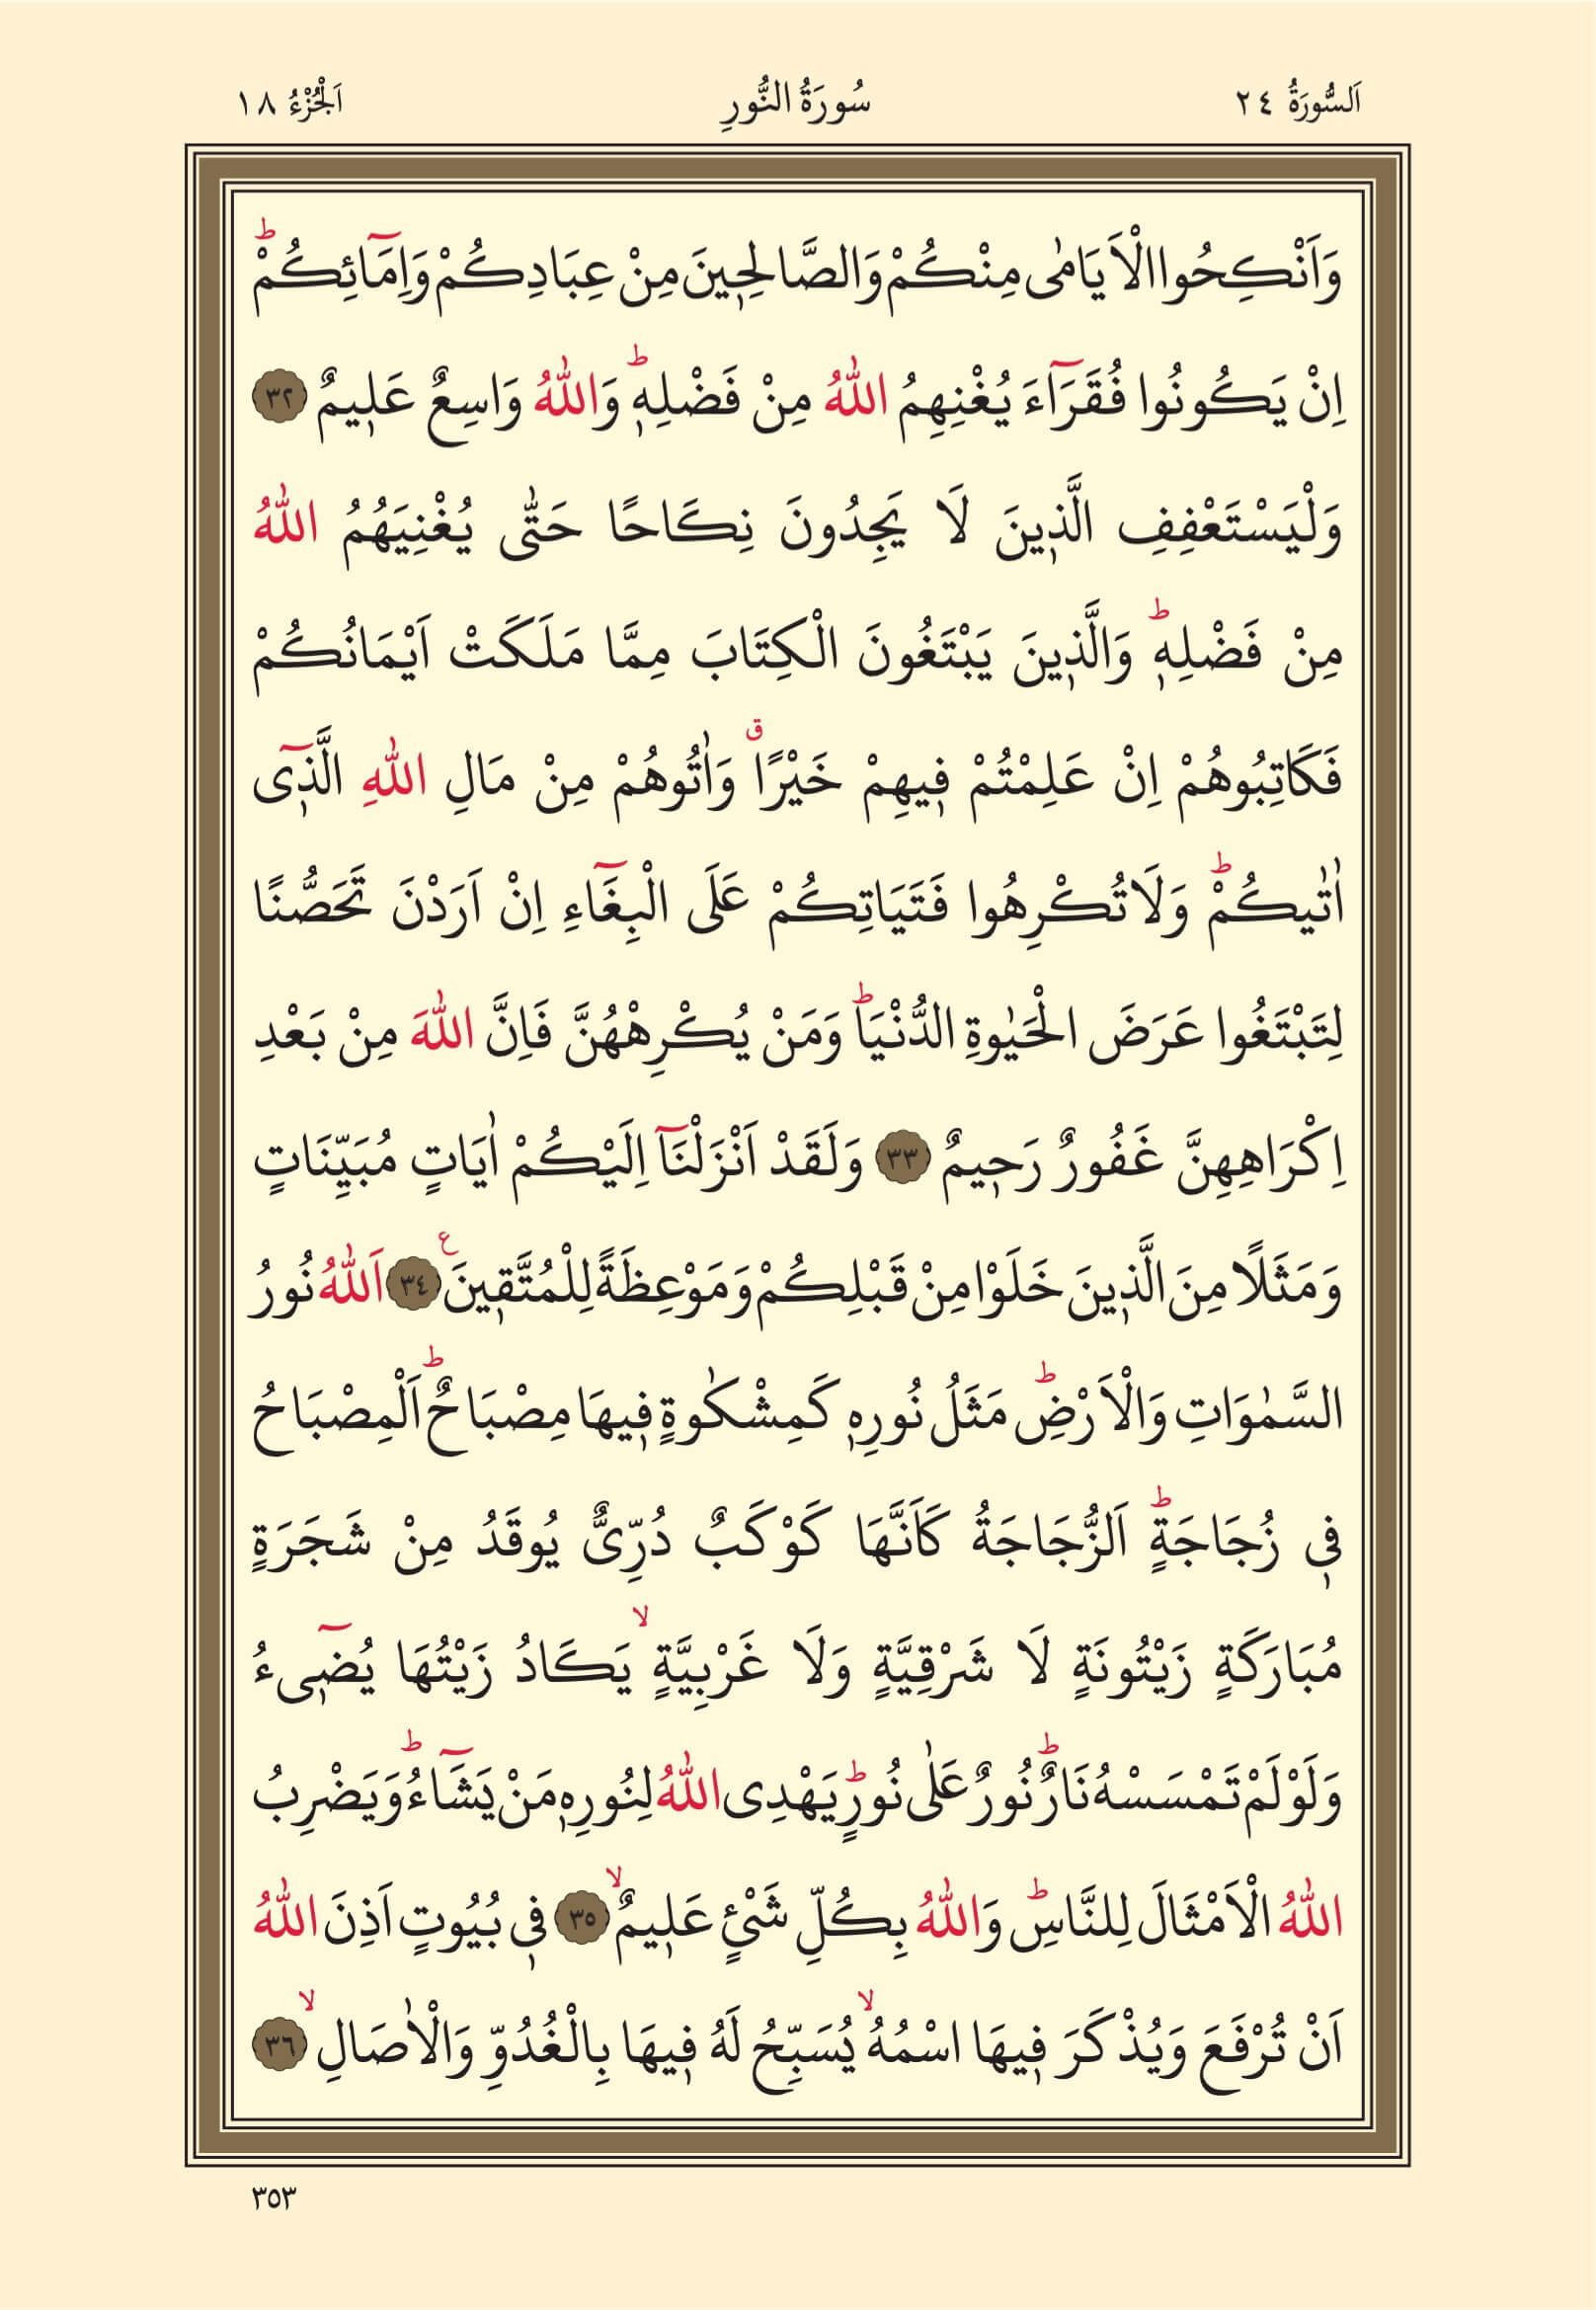 اَلسُّورَةُ ٢٤ سُورَةُ النُّورِ اَلْجُزْءُ ١٨
وَاَنْكِحُوا الْاَيَامٰى مِنْكُمْ وَالصَّالِحٖينَ مِنْ عِبَادِكُمْ وَاِمَٓائِكُمْؕ
اِنْ يَكُونُوا فُقَرَٓاءَ يُغْنِهِمُ اللّٰهُ مِنْ فَضْلِهٖؕ وَاللّٰهُ وَاسِعٌ عَلٖيمٌ ٣٢
وَلْيَسْتَعْفِفِ الَّذٖينَ لَا يَجِدُونَ نِكَاحًا حَتّٰى يُغْنِيَهُمُ اللّٰهُ
مِنْ فَضْلِهٖؕ وَالَّذٖينَ يَبْتَغُونَ الْكِتَابَ مِمَّا مَلَكَتْ اَيْمَانُكُمْ
فَكَاتِبُوهُمْ اِنْ عَلِمْتُمْ فٖيهِمْ خَيْرًاۗ وَاٰتُوهُمْ مِنْ مَالِ اللّٰهِ الَّذٖٓى
اٰتٰيكُمْؕ وَلَا تُكْرِهُوا فَتَيَاتِكُمْ عَلَى الْبِغَٓاءِ اِنْ اَرَدْنَ تَحَصُّنًا
لِتَبْتَغُوا عَرَضَ الْحَيٰوةِ الدُّنْيَاؕ وَمَنْ يُكْرِهْهُنَّ فَاِنَّ اللّٰهَ مِنْ بَعْدِ
اِكْرَاهِهِنَّ غَفُورٌ رَحٖيمٌ ٣٣ وَلَقَدْ اَنْزَلْنَٓا اِلَيْكُمْ اٰيَاتٍ مُبَيِّنَاتٍ
وَمَثَلًا مِنَ الَّذٖينَ خَلَوْا مِنْ قَبْلِكُمْ وَمَوْعِظَةً لِلْمُتَّقٖينَ ع ٣٤ اَللّٰهُ نُورُ
السَّمٰوَاتِ وَالْاَرْضِؕ مَثَلُ نُورِهٖ كَمِشْكٰوةٍ فٖيهَا مِصْبَاحٌؕ اَلْمِصْبَاحُ
فٖى زُجَاجَةٍؕ اَلزُّجَاجَةُ كَاَنَّهَا كَوْكَبٌ دُرِّىٌّ يُوقَدُ مِنْ شَجَرَةٍ
مُبَارَكَةٍ زَيْتُونَةٍ لَا شَرْقِيَّةٍ وَلَا غَرْبِيَّةٍۙ يَكَادُ زَيْتُهَا يُضٖٓىءُ
وَلَوْ لَمْ تَمْسَسْهُ نَارٌؕ نُورٌ عَلٰى نُورٍؕ يَهْدِى اللّٰهُ لِنُورِهٖ مَنْ يَشَٓاءُؕ وَيَضْرِبُ
اللّٰهُ الْاَمْثَالَ لِلنَّاسِؕ وَاللّٰهُ بِكُلِّ شَیْئٍ عَلٖيمٌۙ ٣٥ فٖى بُيُوتٍ اَذِنَ اللّٰهُ
اَنْ تُرْفَعَ وَيُذْكَرَ فٖيهَا اسْمُهُۙ يُسَبِّحُ لَهُ فٖيهَا بِالْغُدُوِّ وَالْاٰصَالِۙ ٣٦
٣٥٣